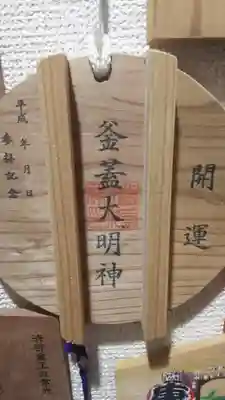 開運
釜蓋大明神
平成 年 月 日
参拝記念